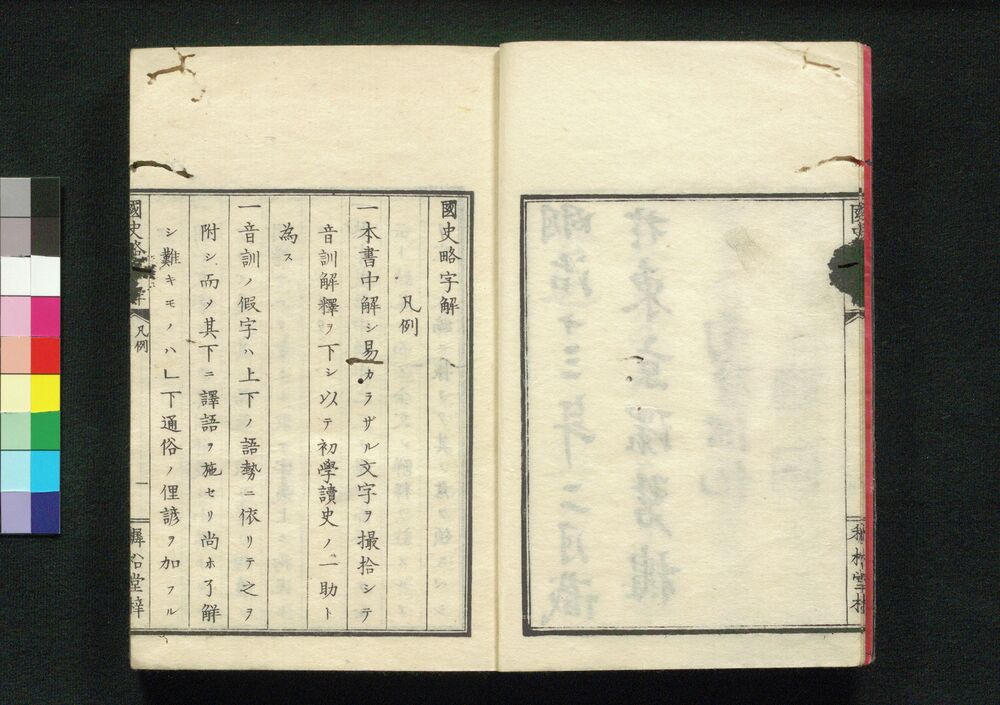 國史略字解
凡例
一本書中解シ易カラザル文字ヲ撮拾シテ
音訓解釋ヲ下シ以テ初學讀史ノ一助ト
為ス
一音訓ノ假字ハ上下ノ語勢ニ依リテ之ヲ
附シ而メ其下ニ譯語ヲ施セリ尚ホ了解
シ難キモノハ乚下通俗ノ俚諺ヲ加フル
國史略 解
凡例
一
堂梓